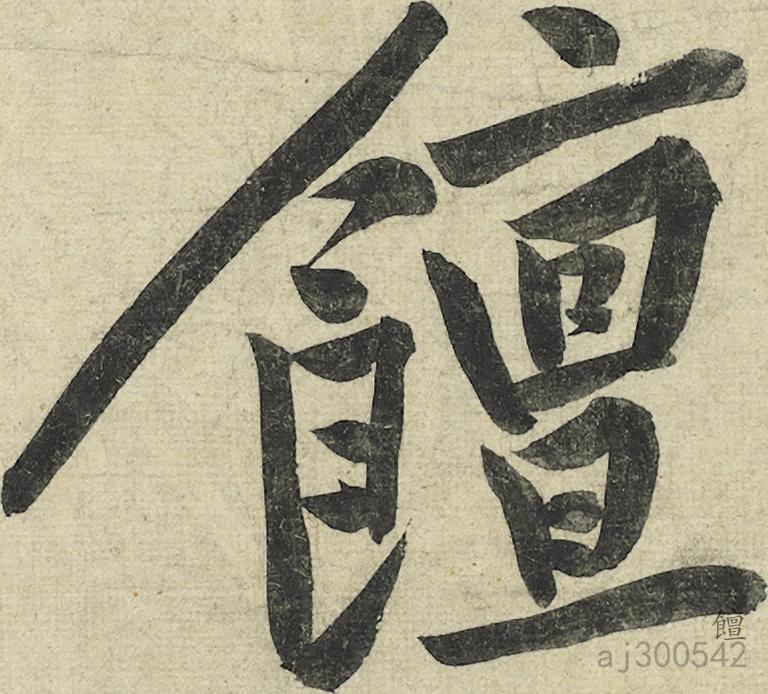 饘
饘
aj300542